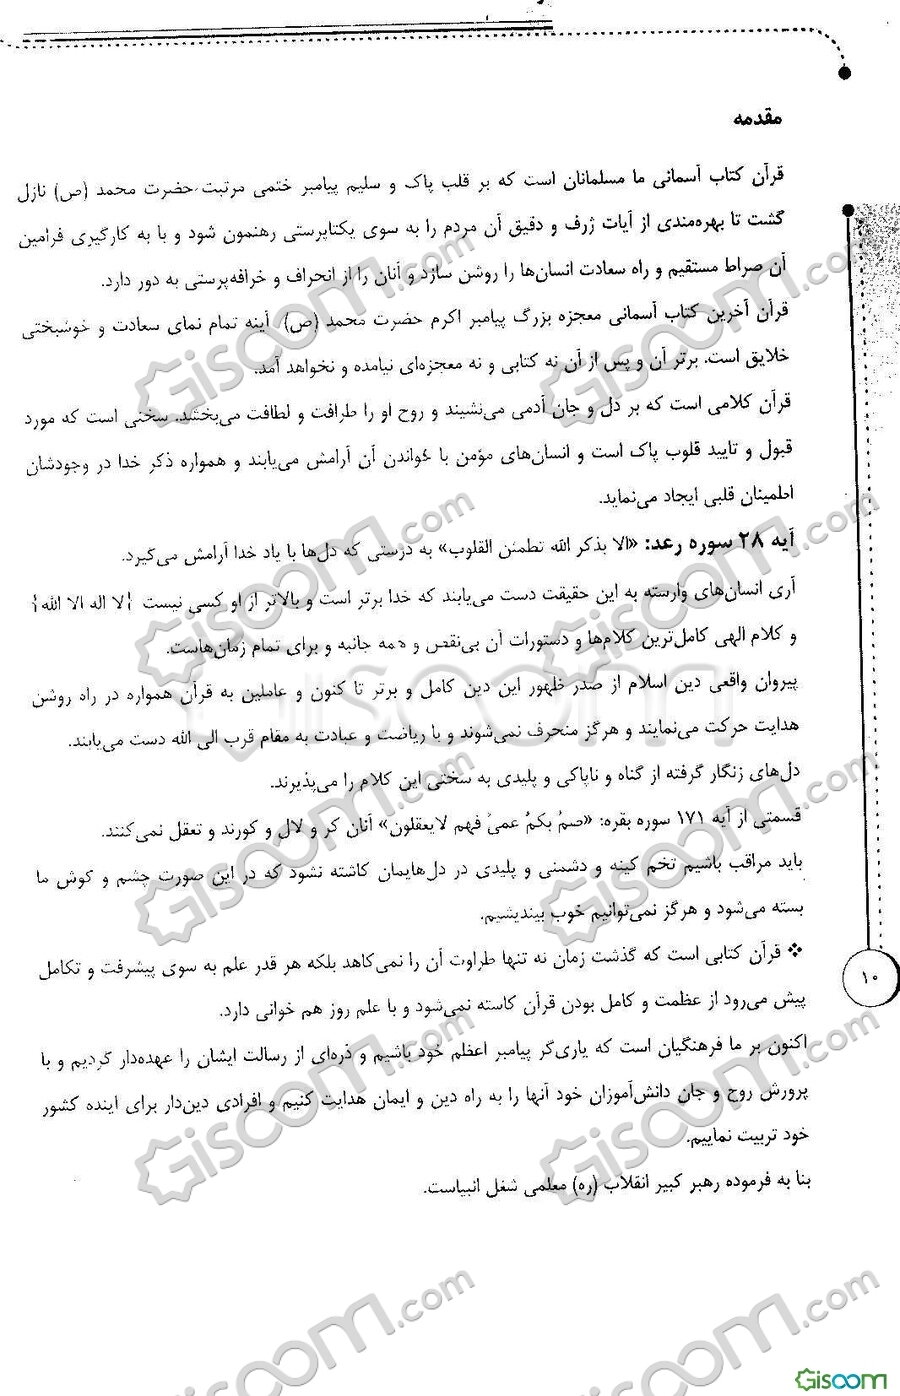 مقدمه
قرآن کتاب آسمانی ما مسلمانان است که بر قلب پاک و سلیم پیامبر ختمی مرتبت حضرت محمد (ص) نازل
گشت تا بهره‌مندی از آیات ژرف و دقیق آن مردم را به سوی یکتاپرستی رهنمون شود و با به کارگیری فرامین
آن صراط مستقیم و راه سعادت انسان‌ها را روشن سازد و آنان را از انحراف و خرافه‌پرستی به دور دارد.
قرآن آخرین کتاب آسمانی معجزه بزرگ پیامبر اکرم حضرت محمد (ص) آینه تمام نمای سعادت و خوشبختی
خلایق است. برتر آن و پس از آن نه کتابی و نه معجزه‌ای نیامده و نخواهد آمد.
قرآن کلامی است که بر دل و جان آدمی می‌نشیند و روح او را ظرافت و لطافت می‌بخشد. سخنی است که مورد
قبول و تایید قلوب پاک است و انسان‌های مؤمن با خواندن آن آرامش می‌یابند و همواره ذکر خدا در وجودشان
اطمینان قلبی ایجاد می‌نماید.
آیه ۲۸ سوره رعد: «الا بذکر الله تطمئن القلوب» به درستی که دل‌ها با یاد خدا آرامش می‌گیرد.
آری انسان‌های وارسته به این حقیقت دست می‌یابند که خدا برتر است و بالاتر از او کسی نیست {لا اله الا الله}
و کلام الهی کامل‌ترین کلام‌ها و دستورات آن بی‌نقص و همه جانبه و برای تمام زمان‌هاست.
پیروان واقعی دین اسلام از صدر ظهور این دین کامل و برتر تا کنون و عاملین به قرآن همواره در راه روشن
هدایت حرکت می‌نمایند و هرگز منحرف نمی‌شوند و با ریاضت و عبادت به مقام قرب الی الله دست می‌یابند.
دل‌های زنگار گرفته از گناه و ناپاکی و پلیدی به سختی این کلام را می‌پذیرند.
قسمتی از آیه ۱۷۱ سوره بقره: «صمُ بکمُ عمیُ فهم لایعقلون» آنان کر و لال و کورند و تعقل نمی‌کنند.
باید مراقب باشیم تخم کینه و دشمنی و پلیدی در دل‌هایمان کاشته نشود که در این صورت چشم و گوش ما
بسته می‌شود و هرگز نمی‌توانیم خوب بیندیشیم.
❖ قرآن کتابی است که گذشت زمان نه تنها طراوت آن را نمی‌کاهد بلکه هر قدر علم به سوی پیشرفت و تکامل
پیش می‌رود از عظمت و کامل بودن قرآن کاسته نمی‌شود و با علم روز هم خوانی دارد.
۱۰
اکنون بر ما فرهنگیان است که یاری‌گر پیامبر اعظم خود باشیم و ذره‌ای از رسالت ایشان را عهده‌دار گردیم و با
پرورش روح و جان دانش‌آموزان خود آنها را به راه دین و ایمان هدایت کنیم و افرادی دین‌دار برای آینده کشور
خود تربیت نماییم.
بنا به فرموده رهبر کبیر انقلاب (ره) معلمی شغل انبیاست.
Gisoom
Gisoom.com